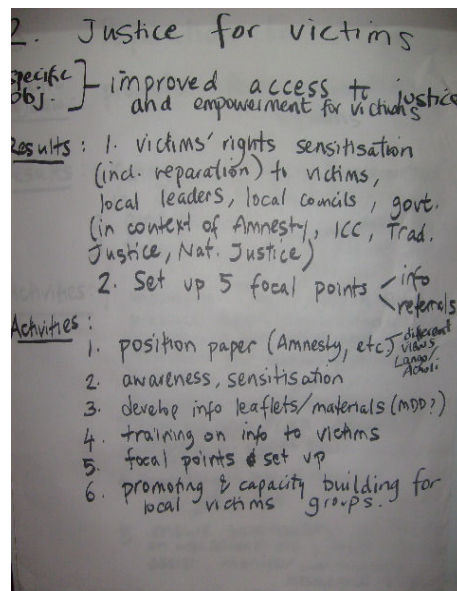 2. Justice for victims
specific obj. } - improved access to justice
and empowerment for victims
Results : 1. victims' rights sensitisation
(incl. reparation) to victims,
local leaders, local councils, govt.
(in context of Amnesty, ICC, Trad.
Justice, Nat. Justice)
2. Set up 5 focal points < info
referrals
Activities :
1. position paper (Amnesty, etc.) - different
views
Lango/
Acholi
2. awareness, sensitisation
3. develop info leaflets/materials (MDD?)
4. training on info to victims
5. focal points set up
6. promoting & capacity building for
local victims groups.